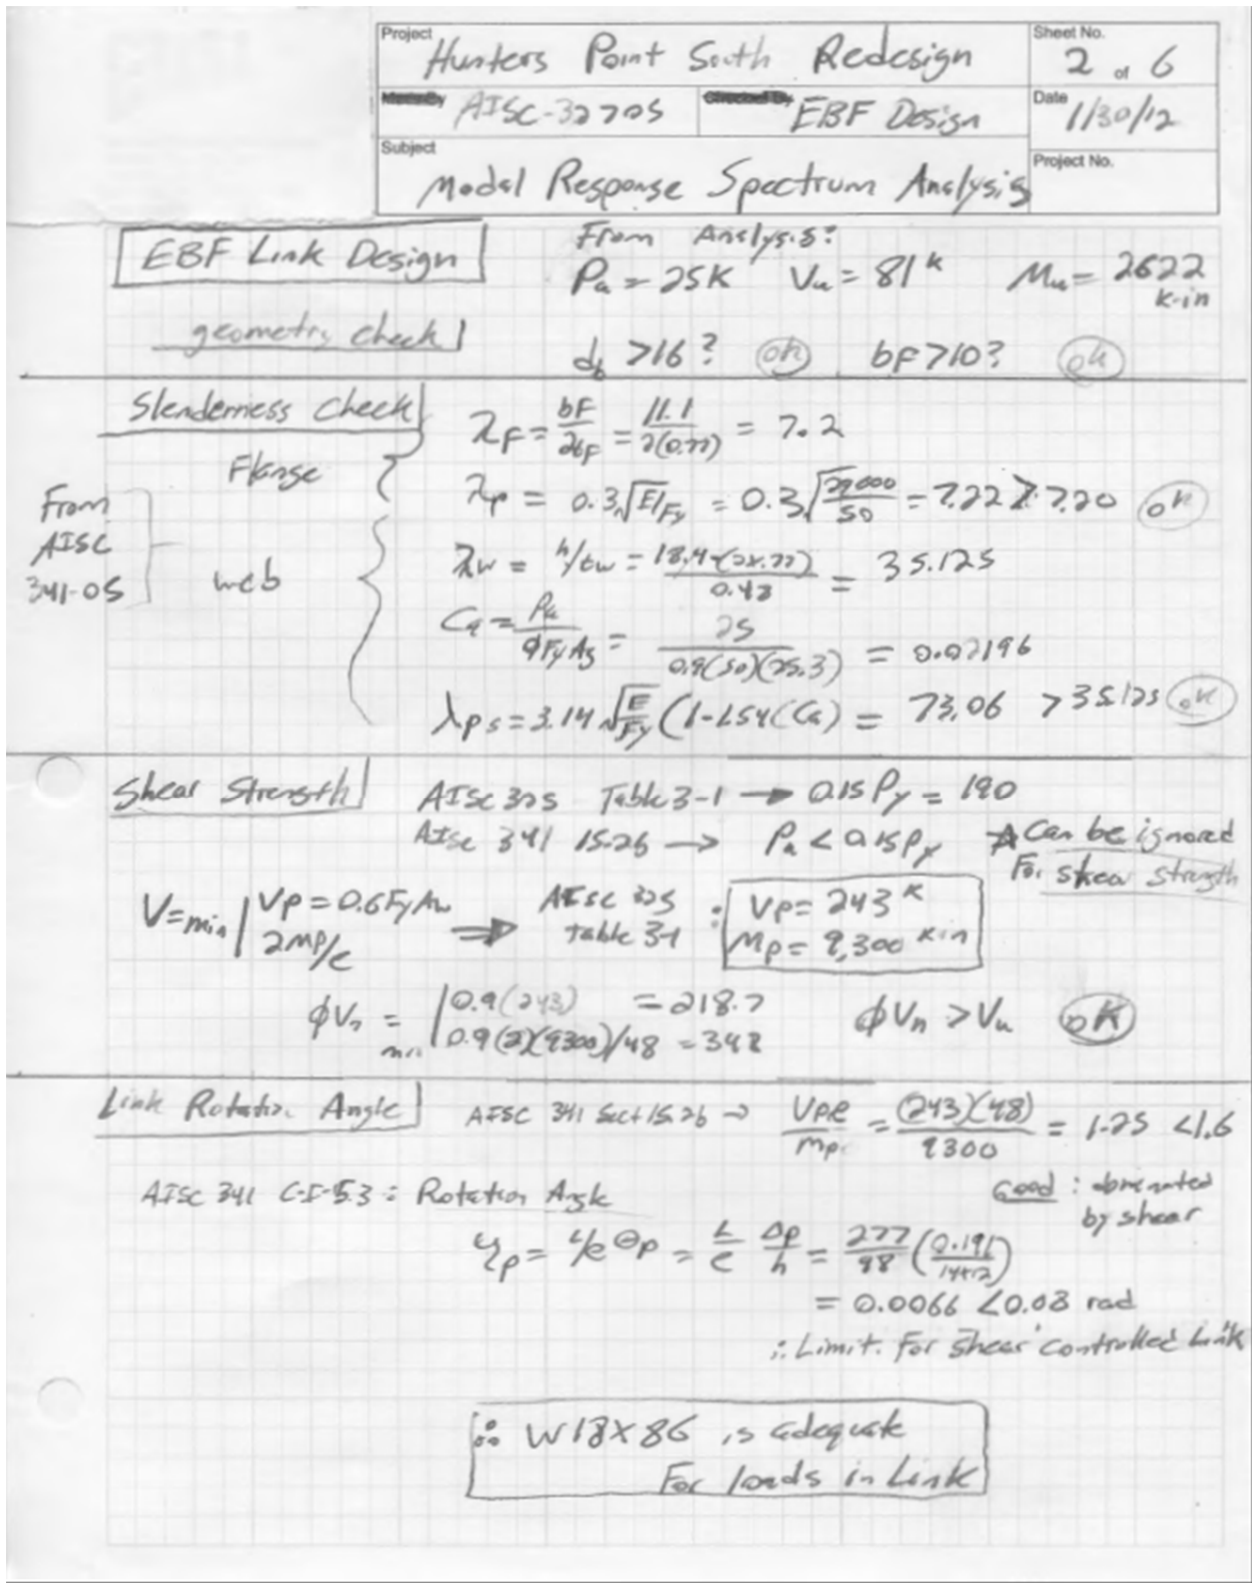 Project Hunters Point South Redesign
Sheet No. 2 of 6
AISC-32705
EBF Design
Date 1/30/12
Subject Modal Response Spectrum Analysis
Project No.
EBF Link Design
From Analysis:
Pu = 25K Vu = 81 k Mu = 2622 k-in
geometry check
db >16? ok bF >10? ok
Slenderness Check
Flange
λF = bF/2tF = 11.1/2(0.77) = 7.2
λp = 0.3√E/Fy = 0.3√29000/50 = 7.22 > 7.20 ok
From AISC 341-05
web
λw = h/tw = 18.4-(2x.77)/0.48 = 35.125
Ca = Pu/ΦFyAg = 25/0.9(50)(25.3) = 0.02196
λps = 3.14 √E/Fy (1-1.54(Ca) = 73.06 > 35.125 ok
Shear Strength
AISC 325 Table 3-1 → 0.15 Py = 190
AISC 341 15.2b → Pu < 0.15Py * Can be ignored
For shear strength
V = min | Vp = 0.6FyAw
2Mp/e
⇒ AISC 325 table 3-1 : Vp = 243 K
Mp = 9,300 k in
ΦVn = min | 0.9(243) = 218.7
0.9(2)(9300)/48 = 348
ΦVn > Vu ok
Link Rotation Angle
AISC 341 Sect 15.2b → Vpe/Mp = (243)(48)/9300 = 1.25 <1.6
Good : by shear
AISC 341 C-I-5.3 : Rotation Angle
γp = L/e Θp = L/e Δp/h = 277/48 (0.191/14x12)
= 0.0066 <0.08 rad
∴ Limit For Shear controlled Link
∴ W18x86 is adequate
For loads in Link